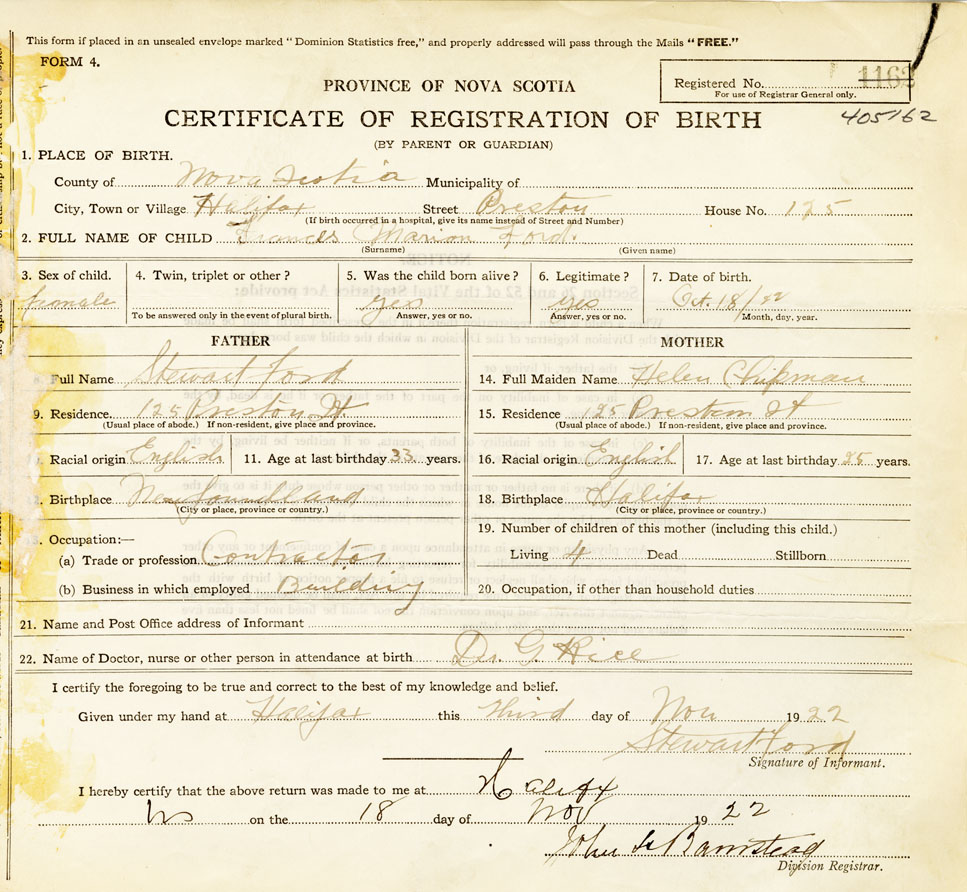 This form if placed in an unsealed envelope marked "Dominion Statistics free," and properly addressed will pass through the Mails "FREE."
FORM 4.
PROVINCE OF NOVA SCOTIA
Registered No. 1162
For use of Registrar General only.
CERTIFICATE OF REGISTRATION OF BIRTH
405162
(BY PARENT OR GUARDIAN)
1. PLACE OF BIRTH.
County of Nova Scotia Municipality of
City, Town or Village Halifax Street Preston House No. 125
(If birth occurred in a hospital, give its name instead of Street and Number)
2. FULL NAME OF CHILD Frances Marion Ford.
(Surname) (Given name)
3. Sex of child. 4. Twin, triplet or other? 5. Was the child born alive? 6. Legitimate? 7. Date of birth.
female yes yes Oct. 18/22
To be answered only in the event of plural birth. Answer, yes or no. Answer, yes or no. Month, day, year.
FATHER MOTHER
Full Name Stewart Ford 14. Full Maiden Name Helen Chipman
9. Residence. 125 Preston St 15. Residence 125 Preston St
(Usual place of abode.) If non-resident, give place and province. (Usual place of abode.) If non-resident, give place and province.
Racial origin English 11. Age at last birthday 33 years. 16. Racial origin English 17. Age at last birthday 25 years.
Birthplace Newfoundland 18. Birthplace Halifax
(City or place, province or country.) (City or place, province or country.)
Occupation:— 19. Number of children of this mother (including this child.)
(a) Trade or profession Contractor Living 4 Dead Stillborn
(b) Business in which employed Building 20. Occupation, if other than household duties
21. Name and Post Office address of Informant
22. Name of Doctor, nurse or other person in attendance at birth Dr. G. Rice
I certify the foregoing to be true and correct to the best of my knowledge and belief.
Given under my hand at Halifax this Third day of Nov 1922
Stewart Ford
Signature of Informant.
I hereby certify that the above return was made to me at Halifx
NS on the 18 day of Nov 1922
John Barnstead
Division Registrar.